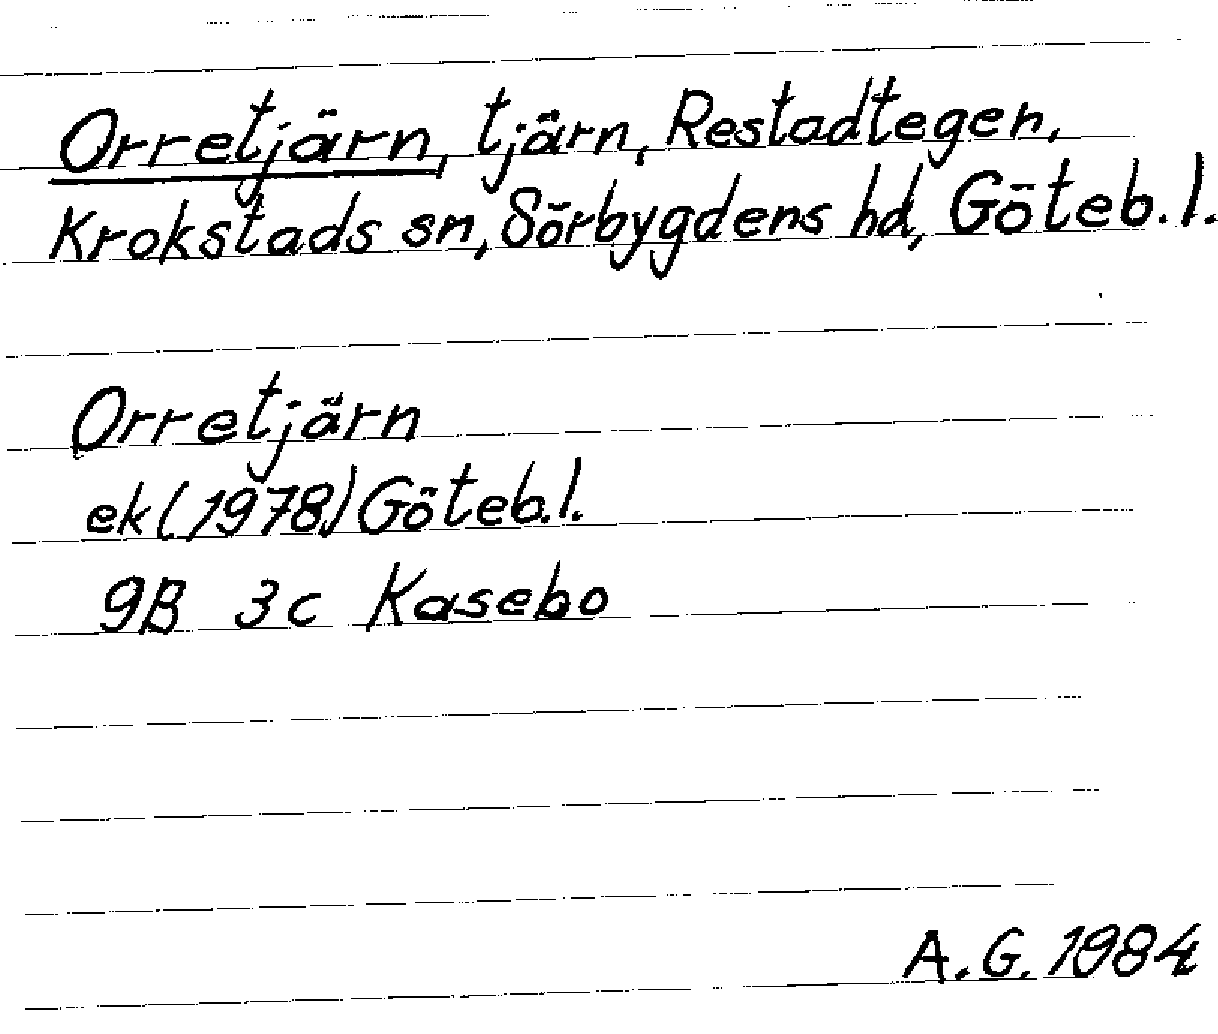 Orretjärn, tjärn, Restadtegen,
Krokstads sn, Sörbygdens hd, Göteb.l.
Orretjärn
ek (1978) Göteb.l.
9B 3c Kasebo
A.G. 1984